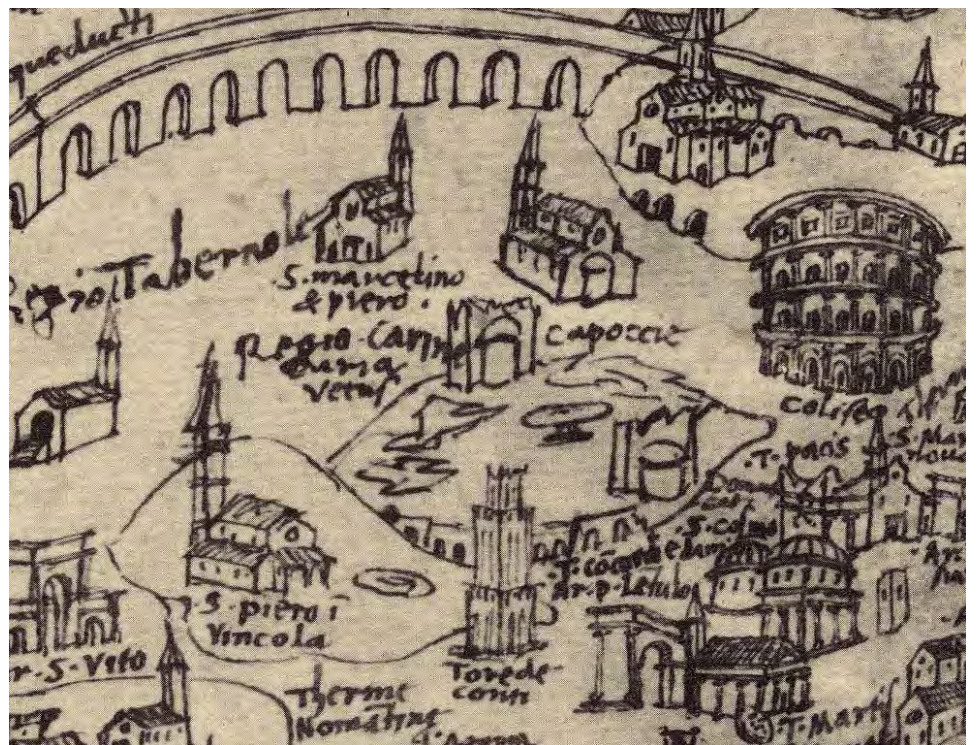 queducti
Tabernole
S. marcelino
& piero.
Regio. Carine
Curia
Vetus
capoccie
coliseo
T. pacis
S. Mar
noua
S. cosmo
e damiano
Ar. p. Letulo
S. piero i
vincola
r. S. Vito
Torede
conti
Therme
Nomatine
T. Martis